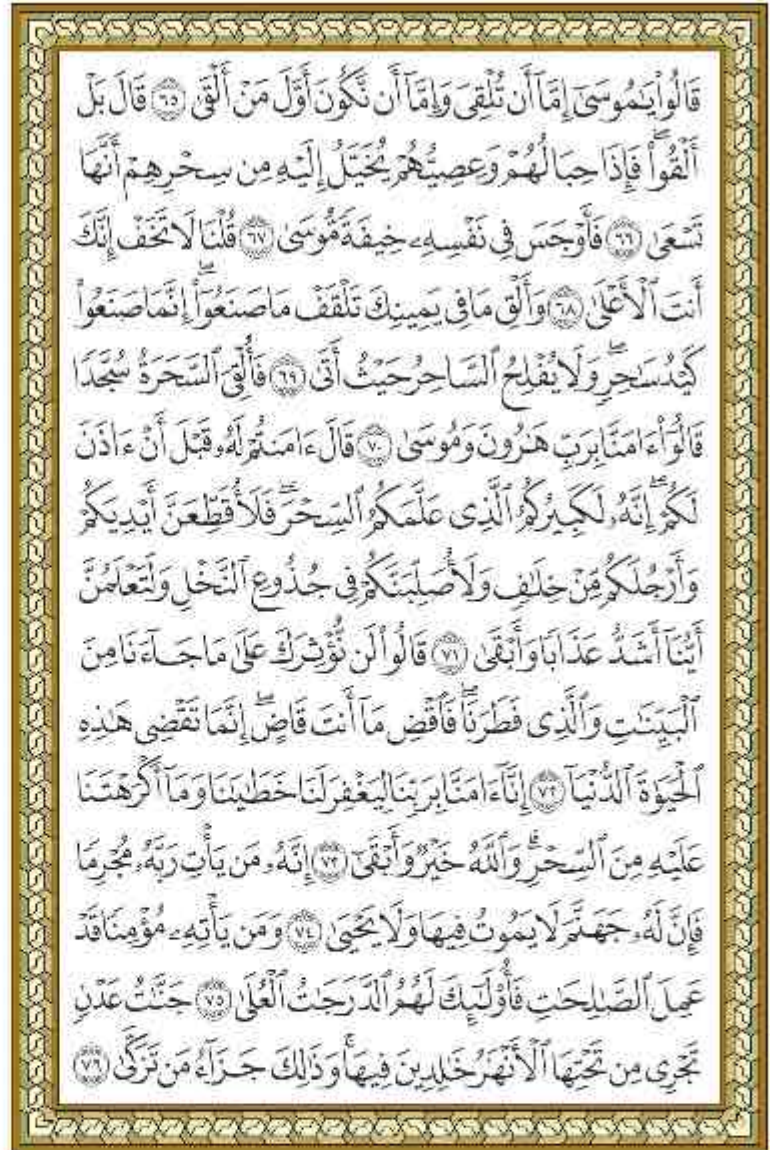 قَالُوا۟ يَـٰمُوسَىٰٓ إِمَّآ أَن تُلْقِىَ وَإِمَّآ أَن نَّكُونَ أَوَّلَ مَنْ أَلْقَىٰ ﴿٦٥﴾ قَالَ بَلْ
أَلْقُوا۟ ۖ فَإِذَا حِبَالُهُمْ وَعِصِيُّهُمْ يُخَيَّلُ إِلَيْهِ مِن سِحْرِهِمْ أَنَّهَا
تَسْعَىٰ ﴿٦٦﴾ فَأَوْجَسَ فِى نَفْسِهِۦ خِيفَةً مُّوسَىٰ ﴿٦٧﴾ قُلْنَا لَا تَخَفْ إِنَّكَ
أَنتَ ٱلْأَعْلَىٰ ﴿٦٨﴾ وَأَلْقِ مَا فِى يَمِينِكَ تَلْقَفْ مَا صَنَعُوٓا۟ ۖ إِنَّمَا صَنَعُوا۟
كَيْدُ سَـٰحِرٍ ۖ وَلَا يُفْلِحُ ٱلسَّاحِرُ حَيْثُ أَتَىٰ ﴿٦٩﴾ فَأُلْقِىَ ٱلسَّحَرَةُ سُجَّدًا
قَالُوٓا۟ ءَامَنَّا بِرَبِّ هَـٰرُونَ وَمُوسَىٰ ﴿٧٠﴾ قَالَ ءَامَنتُمْ لَهُۥ قَبْلَ أَنْ ءَاذَنَ
لَكُمْ ۖ إِنَّهُۥ لَكَبِيرُكُمُ ٱلَّذِى عَلَّمَكُمُ ٱلسِّحْرَ ۖ فَلَأُقَطِّعَنَّ أَيْدِيَكُمْ
وَأَرْجُلَكُم مِّنْ خِلَـٰفٍ وَلَأُصَلِّبَنَّكُمْ فِى جُذُوعِ ٱلنَّخْلِ وَلَتَعْلَمُنَّ
أَيُّنَآ أَشَدُّ عَذَابًا وَأَبْقَىٰ ﴿٧١﴾ قَالُوا۟ لَن نُّؤْثِرَكَ عَلَىٰ مَا جَآءَنَا مِنَ
ٱلْبَيِّنَـٰتِ وَٱلَّذِى فَطَرَنَا ۖ فَٱقْضِ مَآ أَنتَ قَاضٍ ۖ إِنَّمَا تَقْضِى هَـٰذِهِ
ٱلْحَيَوٰةَ ٱلدُّنْيَآ ﴿٧٢﴾ إِنَّآ ءَامَنَّا بِرَبِّنَا لِيَغْفِرَ لَنَا خَطَـٰيَـٰنَا وَمَآ أَكْرَهْتَنَا
عَلَيْهِ مِنَ ٱلسِّحْرِ ۗ وَٱللَّهُ خَيْرٌ وَأَبْقَىٰٓ ﴿٧٣﴾ إِنَّهُۥ مَن يَأْتِ رَبَّهُۥ مُجْرِمًا
فَإِنَّ لَهُۥ جَهَنَّمَ لَا يَمُوتُ فِيهَا وَلَا يَحْيَىٰ ﴿٧٤﴾ وَمَن يَأْتِهِۦ مُؤْمِنًا قَدْ
عَمِلَ ٱلصَّـٰلِحَـٰتِ فَأُو۟لَـٰٓئِكَ لَهُمُ ٱلدَّرَجَـٰتُ ٱلْعُلَىٰ ﴿٧٥﴾ جَنَّـٰتُ عَدْنٍ
تَجْرِى مِن تَحْتِهَا ٱلْأَنْهَـٰرُ خَـٰلِدِينَ فِيهَا ۚ وَذَٰلِكَ جَزَآءُ مَن تَزَكَّىٰ ﴿٧٦﴾